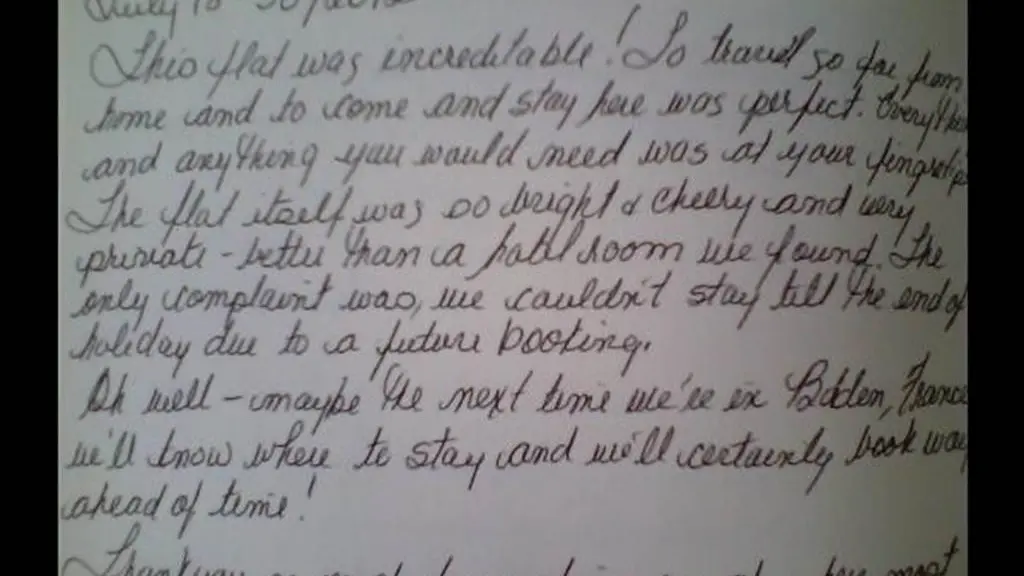 July 18
This flat was increditable! To travel so far from
home and to come and stay here was perfect. Everything
and anything you would need was at your fingertips
The flat itself was so bright & cheery and very
private - better than a hotel room we found. The
only complaint was, we couldn't stay till the end of
holiday due to a future booking.
Oh well - maybe the next time we're in France
we'll know where to stay and we'll certainly book way
ahead of time!
Thank you most